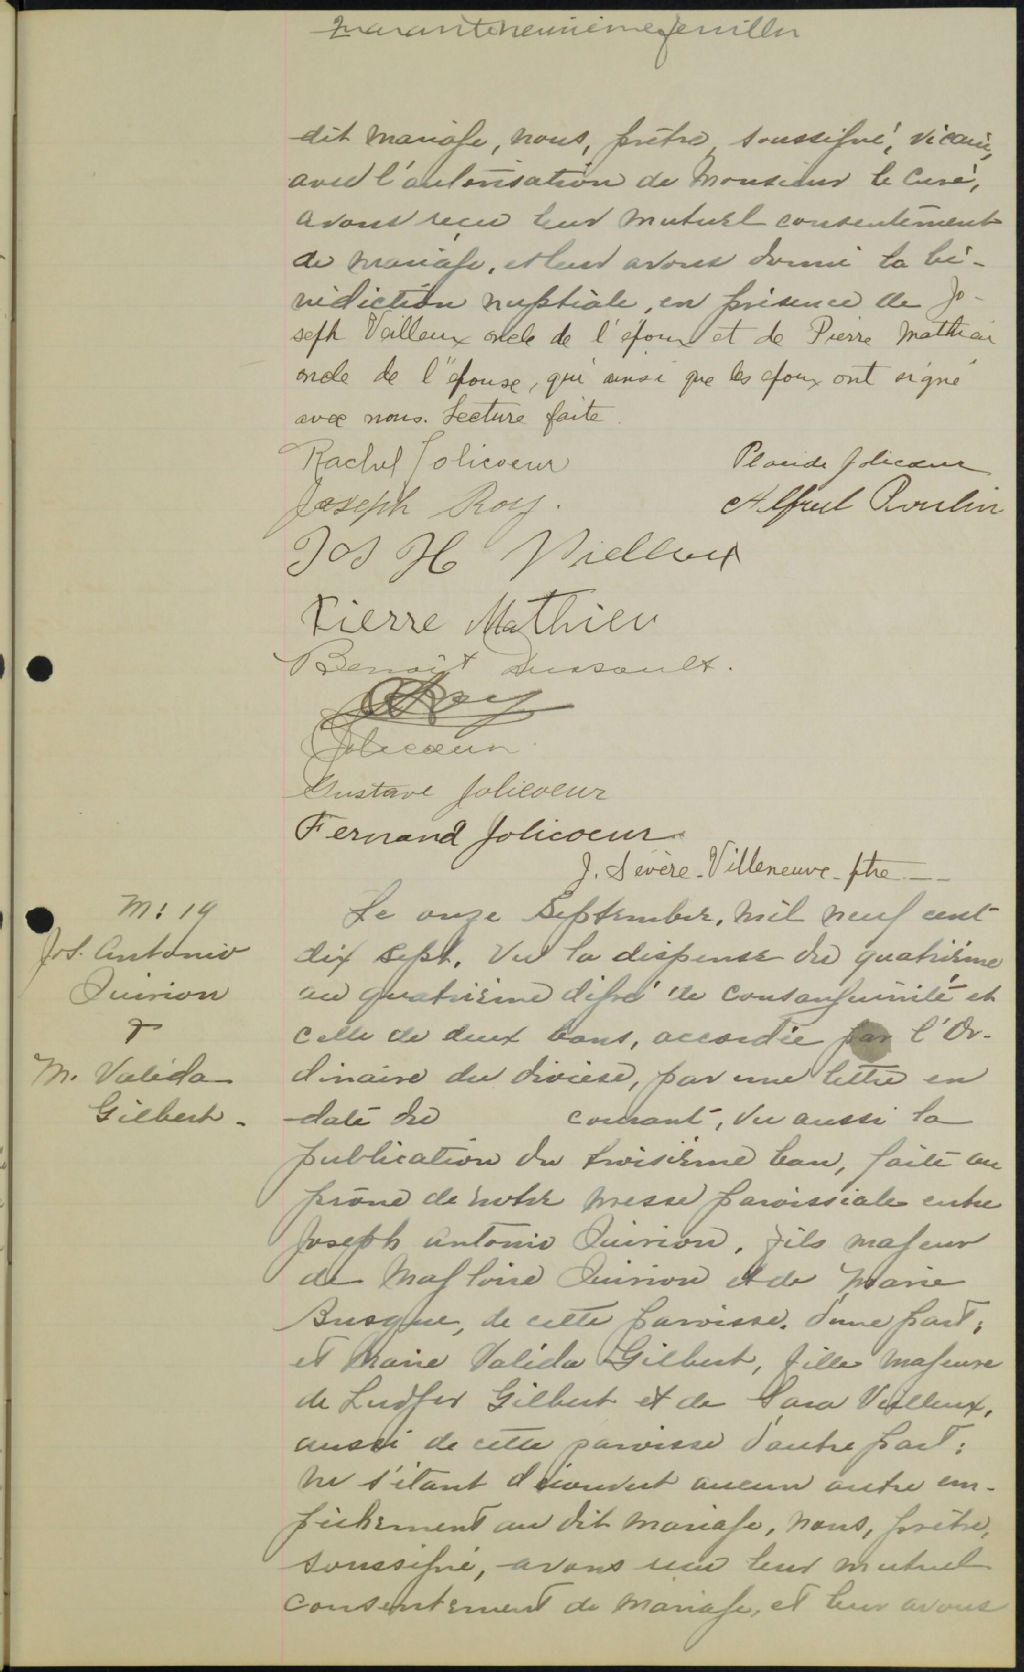 Quarante neuvième feuillet
dit mariage, nous, prêtre, soussigné, vicaire,
avec l'autorisation de Monsieur le Curé,
avons reçu leur mutuel consentement
de mariage, et leur avons donné la bé-
nédiction nuptiale, en présence de Jo-
seph Veilleux oncle de l'époux et de Pierre Mathieu
oncle de l'épouse, qui ainsi que les époux ont signé
avec nous. Lecture faite.
Rachel Jolicoeur Placide Jolicoeur
Joseph Roy. Alfred Poulin
Jos H Vielleux
Pierre Mathieu
Benoit Dussault.
Roy
Jolicoeur
Gustave Jolicoeur
Fernand Jolicoeur
J. Sévère Villeneuve ptre
M: 19
Jos. Antonio
Quirion
&
M. Valéda
Gilbert.
Le onze Septembre, mil neuf cent
dix sept. Vu la dispense du quatrième
au quatrième degré de consanguinité et
celle de deux bans, accordée par l'Or-
dinaire du diocèse, par une lettre en
date du courant, vu aussi la
publication du troisième ban, faite au
prône de notre messe paroissiale entre
Joseph Antonio Quirion, fils majeur
de Magloire Quirion et de Marie
Busque, de cette paroisse, d'une part;
et Marie Valéda Gilbert, fille majeure
de Ludger Gilbert et de Sara Veilleux,
aussi de cette paroisse d'autre part;
ne s'étant découvert aucun autre em-
pêchement au dit mariage, nous, prêtre,
soussigné, avons reçu leur mutuel
consentement de mariage, et leur avons